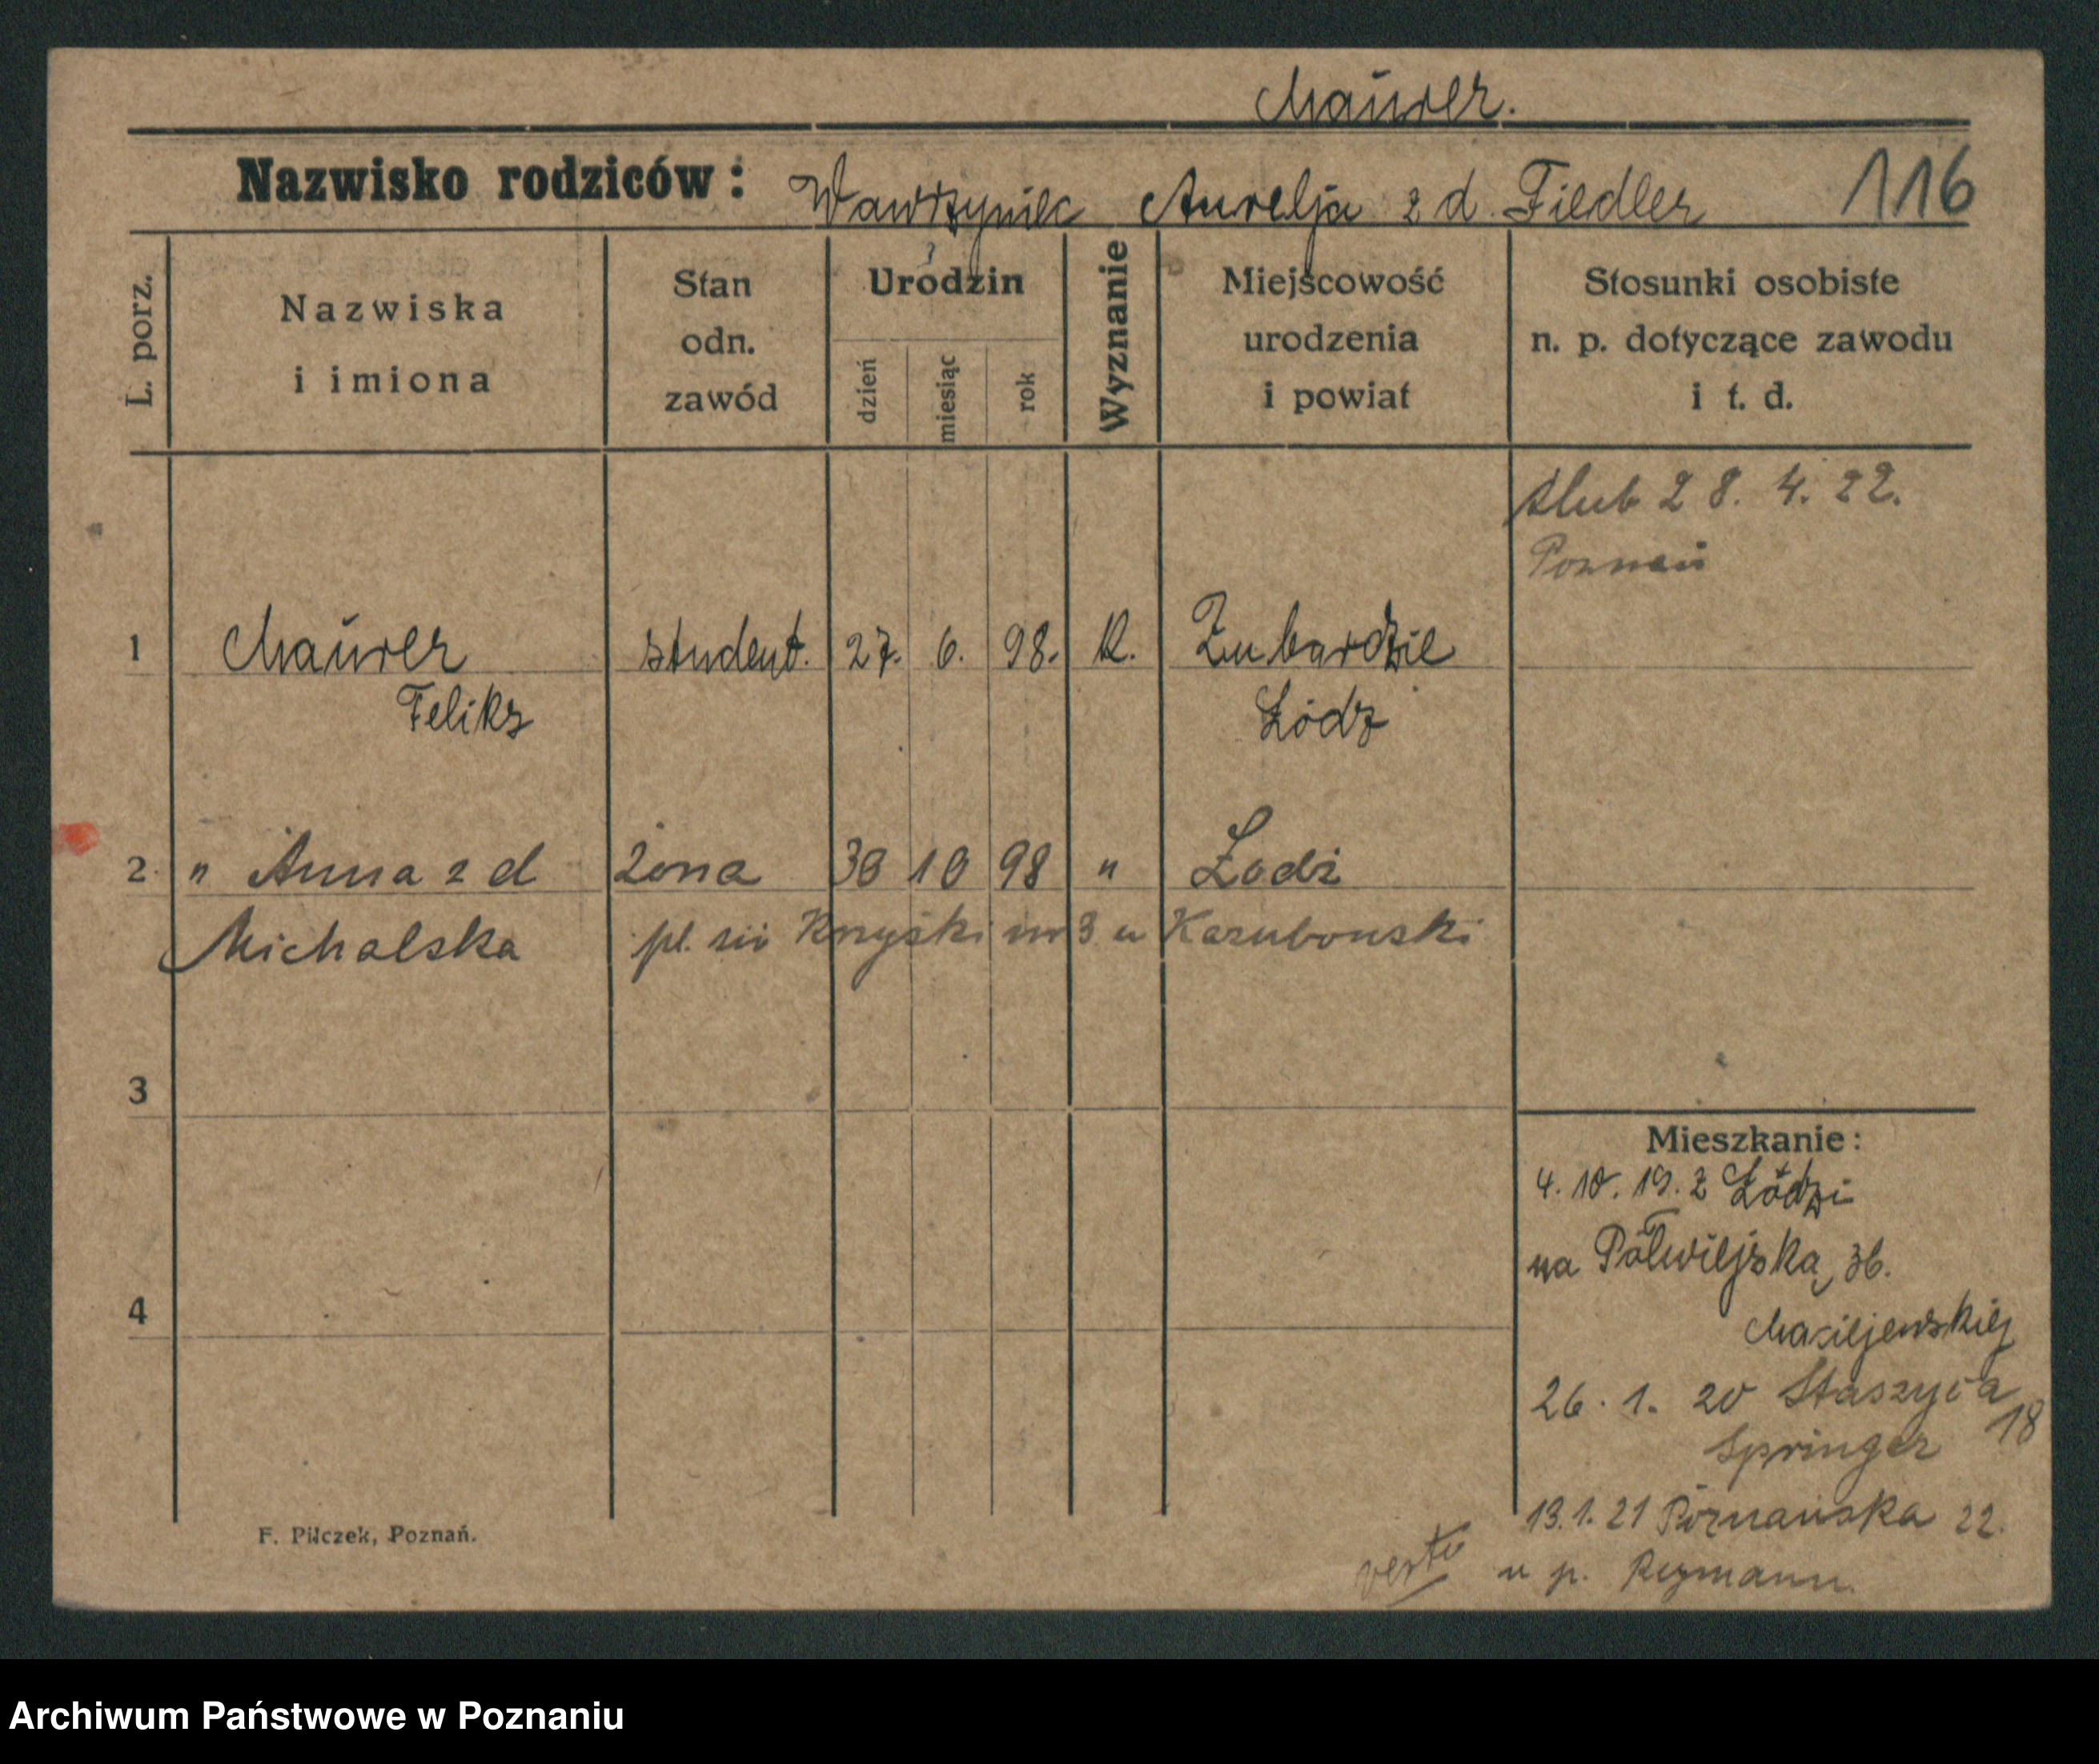 Maurer.
Nazwisko rodziców: Wawrzyniec Aurelja z d. Fiedler 116
L. porz.
Nazwiska
i imiona
Stan
odn.
zawód
Urodzin
dzień
miesiąc
rok
Wyznanie
Miejscowość
urodzenia
i powiat
Stosunki osobiste
n. p. dotyczące zawodu
i t. d.
ślub 28. 4. 22.
Poznań
1 Maurer student. 27. 6. 98. K. Żubardzie
Feliks Łódz
2. " Anna z d żona 30 10 98 " Łodź
Michalska pl. 3 u
3
Mieszkanie:
4. 10. 19. z Łódzi
na Półwiejską 36.
4
Maciejewskiej
26. 1. 20 Staszyca 18
Springer
13. 1. 21 Poznańska 22.
verte u p. Reymann.
F. Pilczek, Poznań.
Archiwum Państwowe w Poznaniu